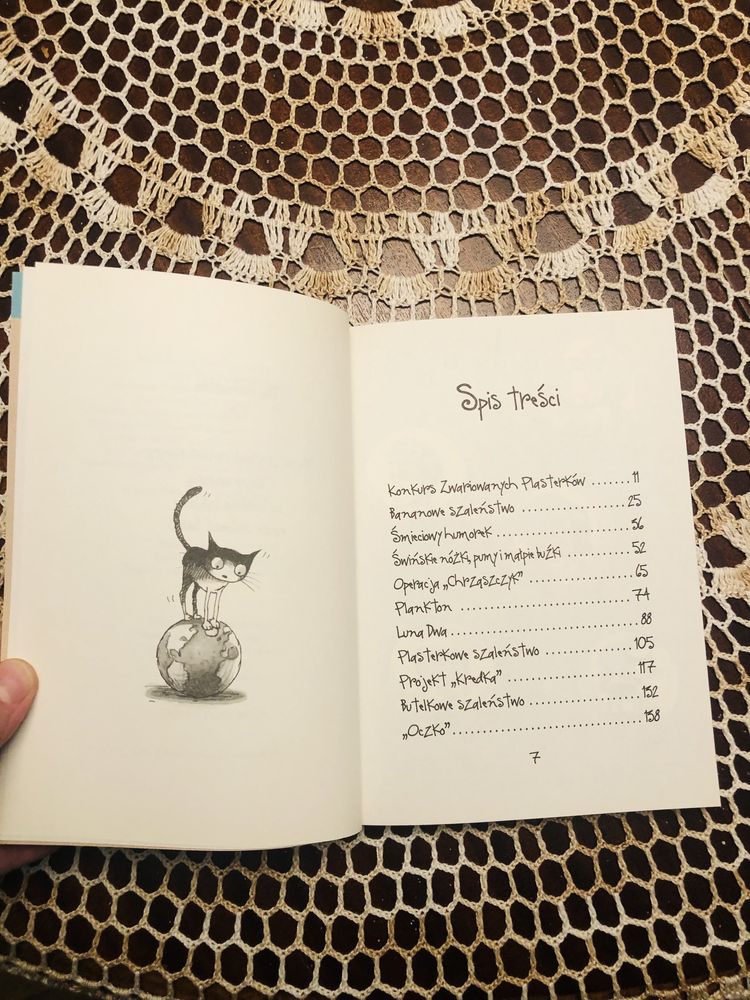 Spis treści
Konkurs Zwariowanych Plasterków ....... 11
Bananowe szaleństwo .................. 25
Śmieciowy humorek ...................... 36
Świńskie nóżki, pumy i małpie buźki ............ 52
Operacja „Chrząszczyk” ................. 65
Plankton ............................ 74
Luna Dwa ............................. 88
Plasterkowe szaleństwo ................ 105
Projekt „Kredka” ..................... 117
Butelkowe szaleństwo .................. 132
„Oczko” ............................. 138
7